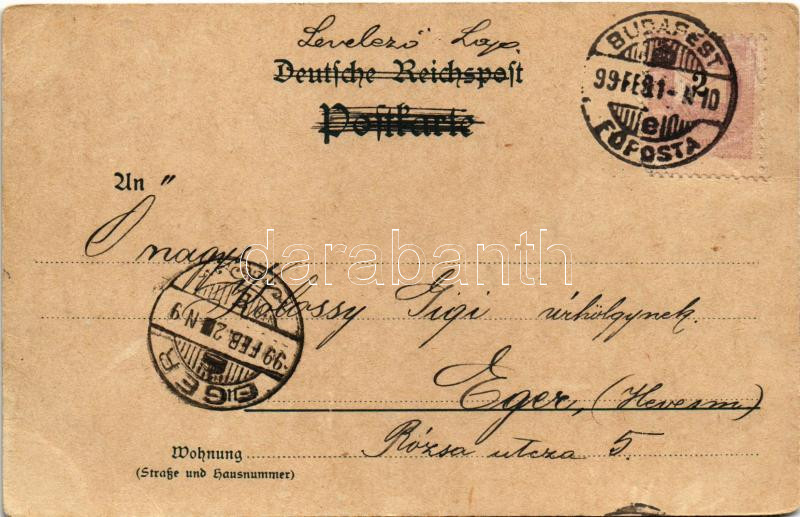 Levelező Lap.
Deutsche Reichspost
Postkarte
BUDAPEST
2
99 FEB 1 - N 10
e
FŐPOSTA
An
Ő nagys.
Gigi úrhölgynek.
EGER
99 FEB. 2 N 9
Eger, (Hevesm)
Wohnung
Rózsa utcza 5.
(Straße und Hausnummer)
darabanth